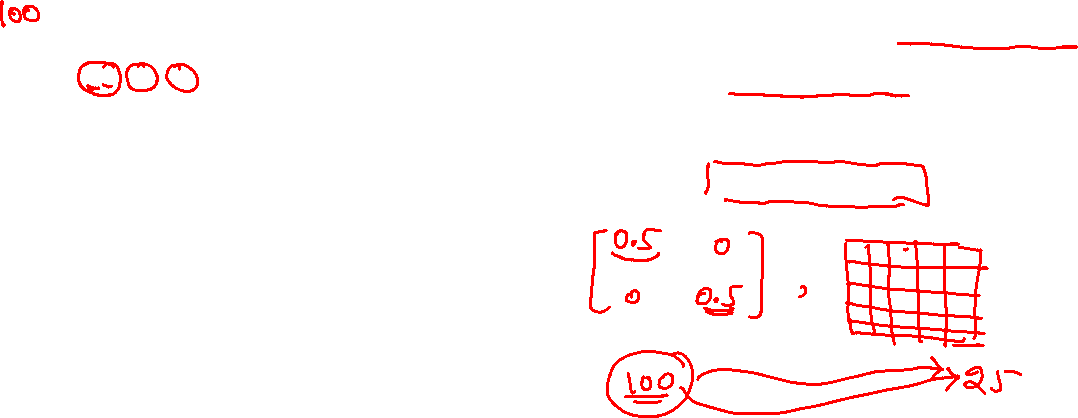 100
0.5 0
0 0.5 ,
100 25